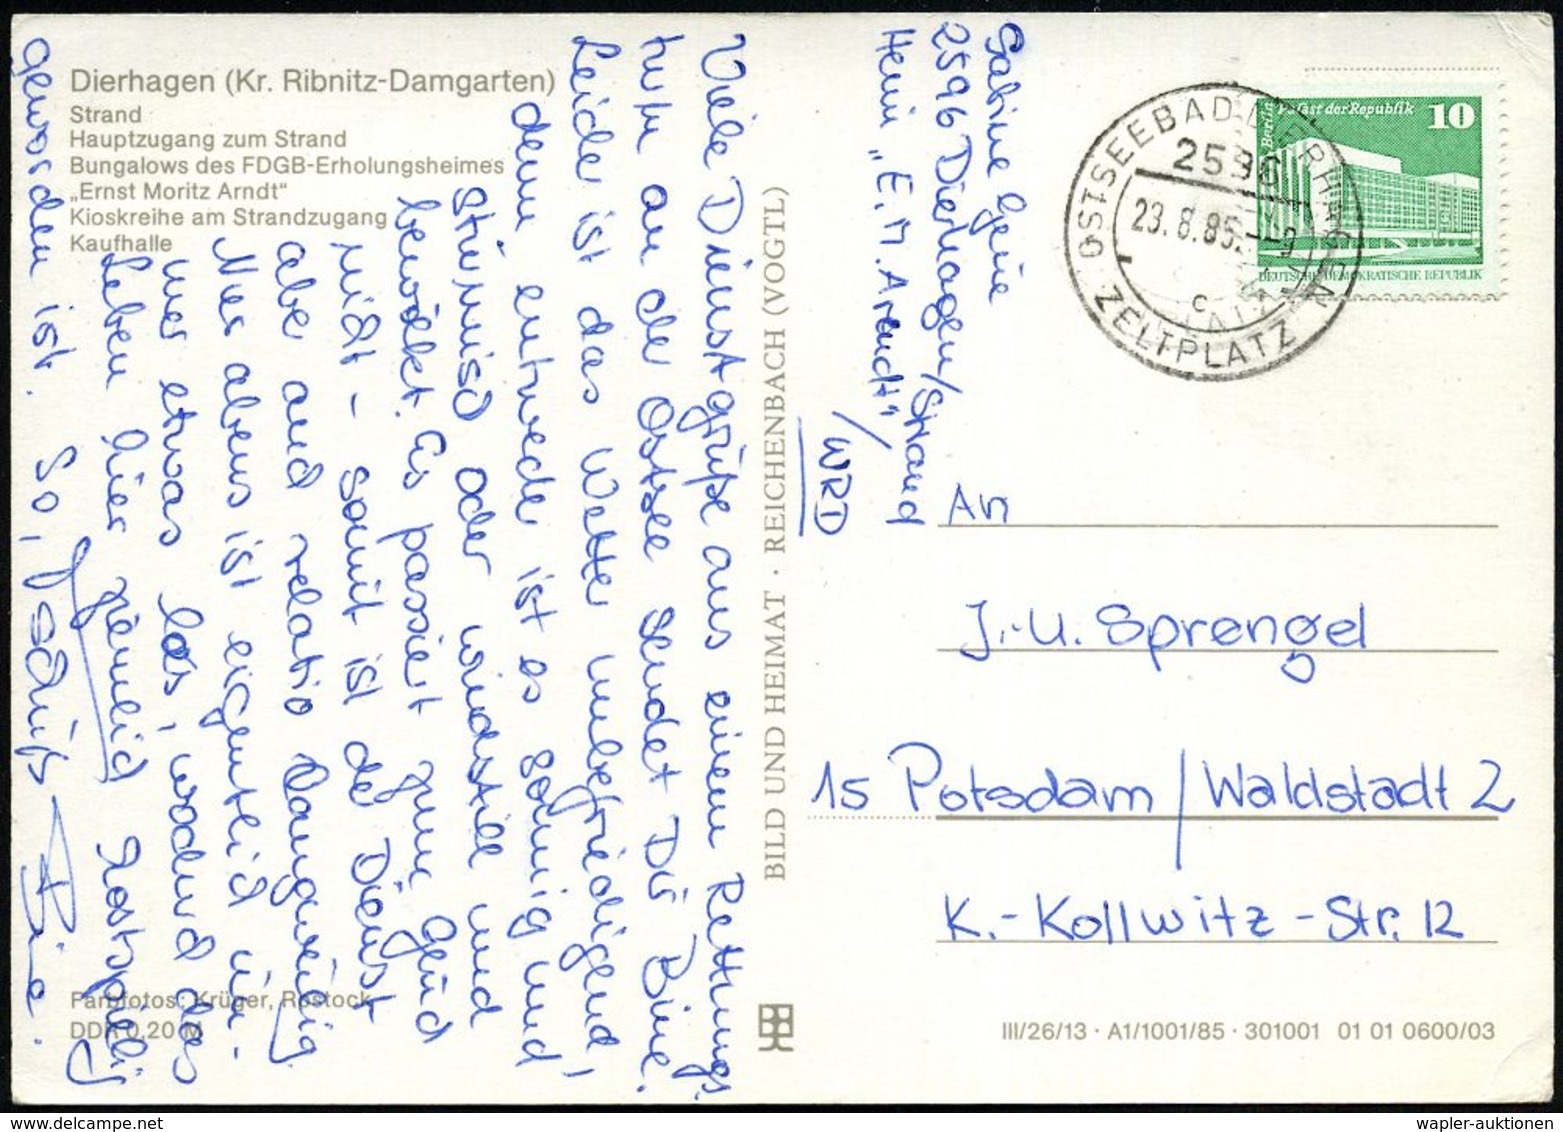 Dierhagen (Kr. Ribnitz-Damgarten)
Strand
Hauptzugang zum Strand
Bungalows des FDGB-Erholungsheimes
„Ernst Moritz Arndt“
Kioskreihe am Strandzugang
Kaufhalle
Viele Dienstgrüße aus einem Rettungs
turm an der Ostsee sendet Dir Bine.
Leider ist das Wetter unbefriedigend,
denn entweder ist es sonnig und
stürmisch oder windstill und
bewölkt. Es passiert zum Glück
nicht - somit ist de Dienst
abe auch relativ langweilig.
Nur abens ist eigentlich im-
mer etwas los, wodurch das
Leben hier ziemlich kostspielig
geworden ist. So, Tschüß Bine.
Farbfotos: Krüger, Rostock
DDR 0,20 M
BILD UND HEIMAT · REICHENBACH (VOGTL)
Sabine
2596 Dierhagen/Strand
Heim „E. M. Arendt“
/WRD
OSTSEEBAD DIERHAGEN
2596
23.8.85.--9
c
ZELTPLATZ
Berlin Palast der Republik 10
DEUTSCHE DEMOKRATISCHE REPUBLIK
An
J.-U. Sprengel
15 Potsdam / Waldstadt 2
K.-Kollwitz-Str. 12
III/26/13 · A1/1001/85 · 301001 01 01 0600/03
wapler-auktionen